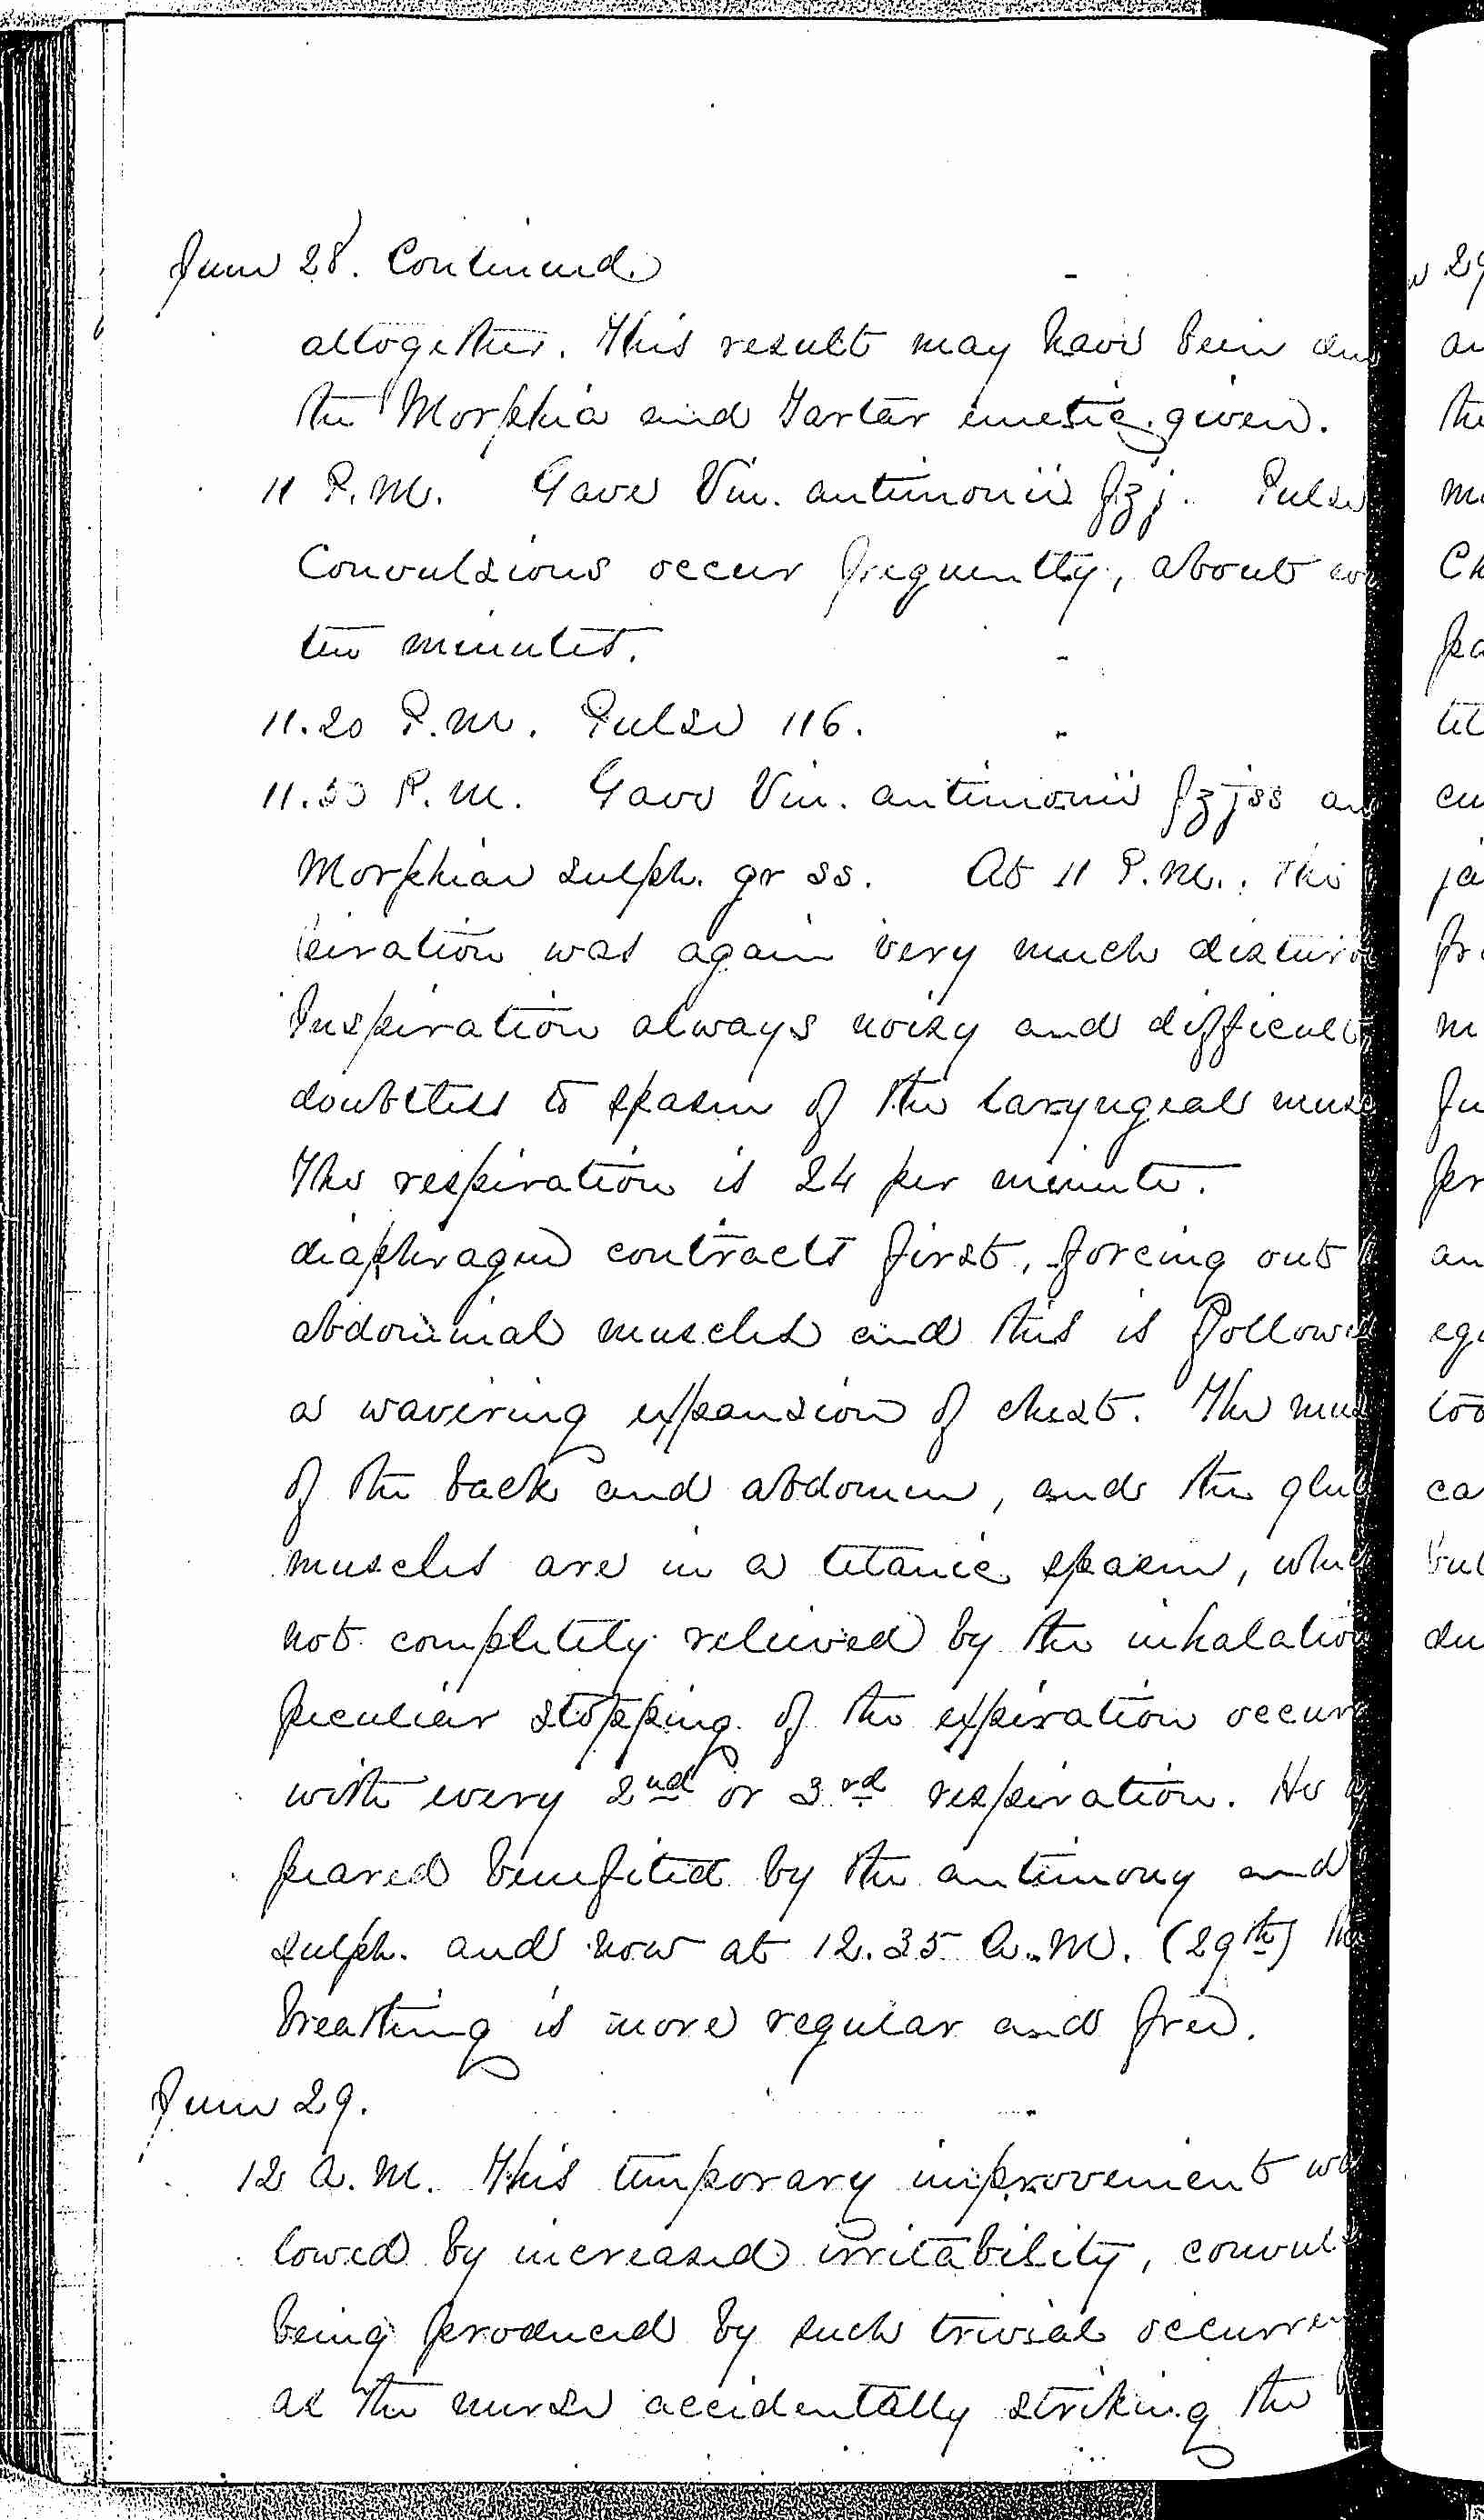 June 28. Continued.
altogether. This result may have been due
the Morphia and Tartar emetic given.
11 P.M. Gave Vin. antimonii fʒj. Pulse
Convulsions occur frequently, about
ten minutes.
11.20 P.M. Pulse 116.
11.50 P.M. Gave Vin. antimonii fʒjss an
Morphiae sulph. gr ss. At 11 P.M., the
piration was again very much disturb
Inspiration always noisy and difficult
doubtless to spasm of the laryngeal musc
The respiration is 24 per minute.
diaphragm contracts first, forcing out
abdominal muscles and this is followed
a wavering expansion of chest. The mus
of the back and abdomen, and the glut
muscles are in a tetanic spasm, whic
not completely relieved by the inhalation
peculiar stopping of the expiration occurs
with every 2nd or 3rd respiration. He a
peared benefited by the antimony and
sulph. and now at 12.35 A.M. (29th) the
breathing is more regular and free.
June 29.
12 A.M. This temporary improvement wa
lowed by increased irritability, convuls
being produced by such trivial occurren
as the nurse accidentally striking the
29
an
the
mo
Ch
pa
tet
cu
ja
fr
m
Ju
pr
an
ega
too
ca
but
du